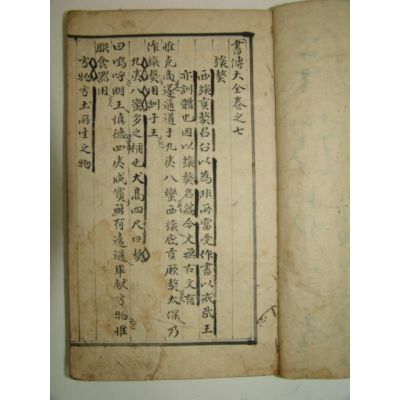 書傳大全卷之七
旅獒
西旅貢獒召公以為非所當受作書以戒武王
亦訓體也因以旅獒名篇今文無古文有
惟克商遂通道于九夷八蠻西旅底貢厥獒太保乃
作旅獒用訓于王
九夷八蠻多之稱也犬高四尺曰獒
曰嗚呼明王愼德四夷咸賓無有遠邇畢献方物惟
服食器用
方物方土所生之物